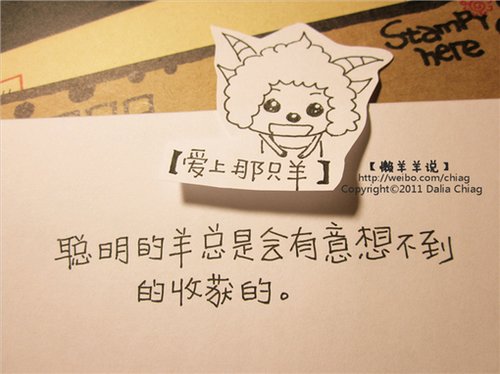 Stampy
here
【爱上那只羊】
【懒羊羊说】
http://weibo.com/chiag
Copyright©2011 Dalia Chiag
聪明的羊总是会有意想不到
的收获的。